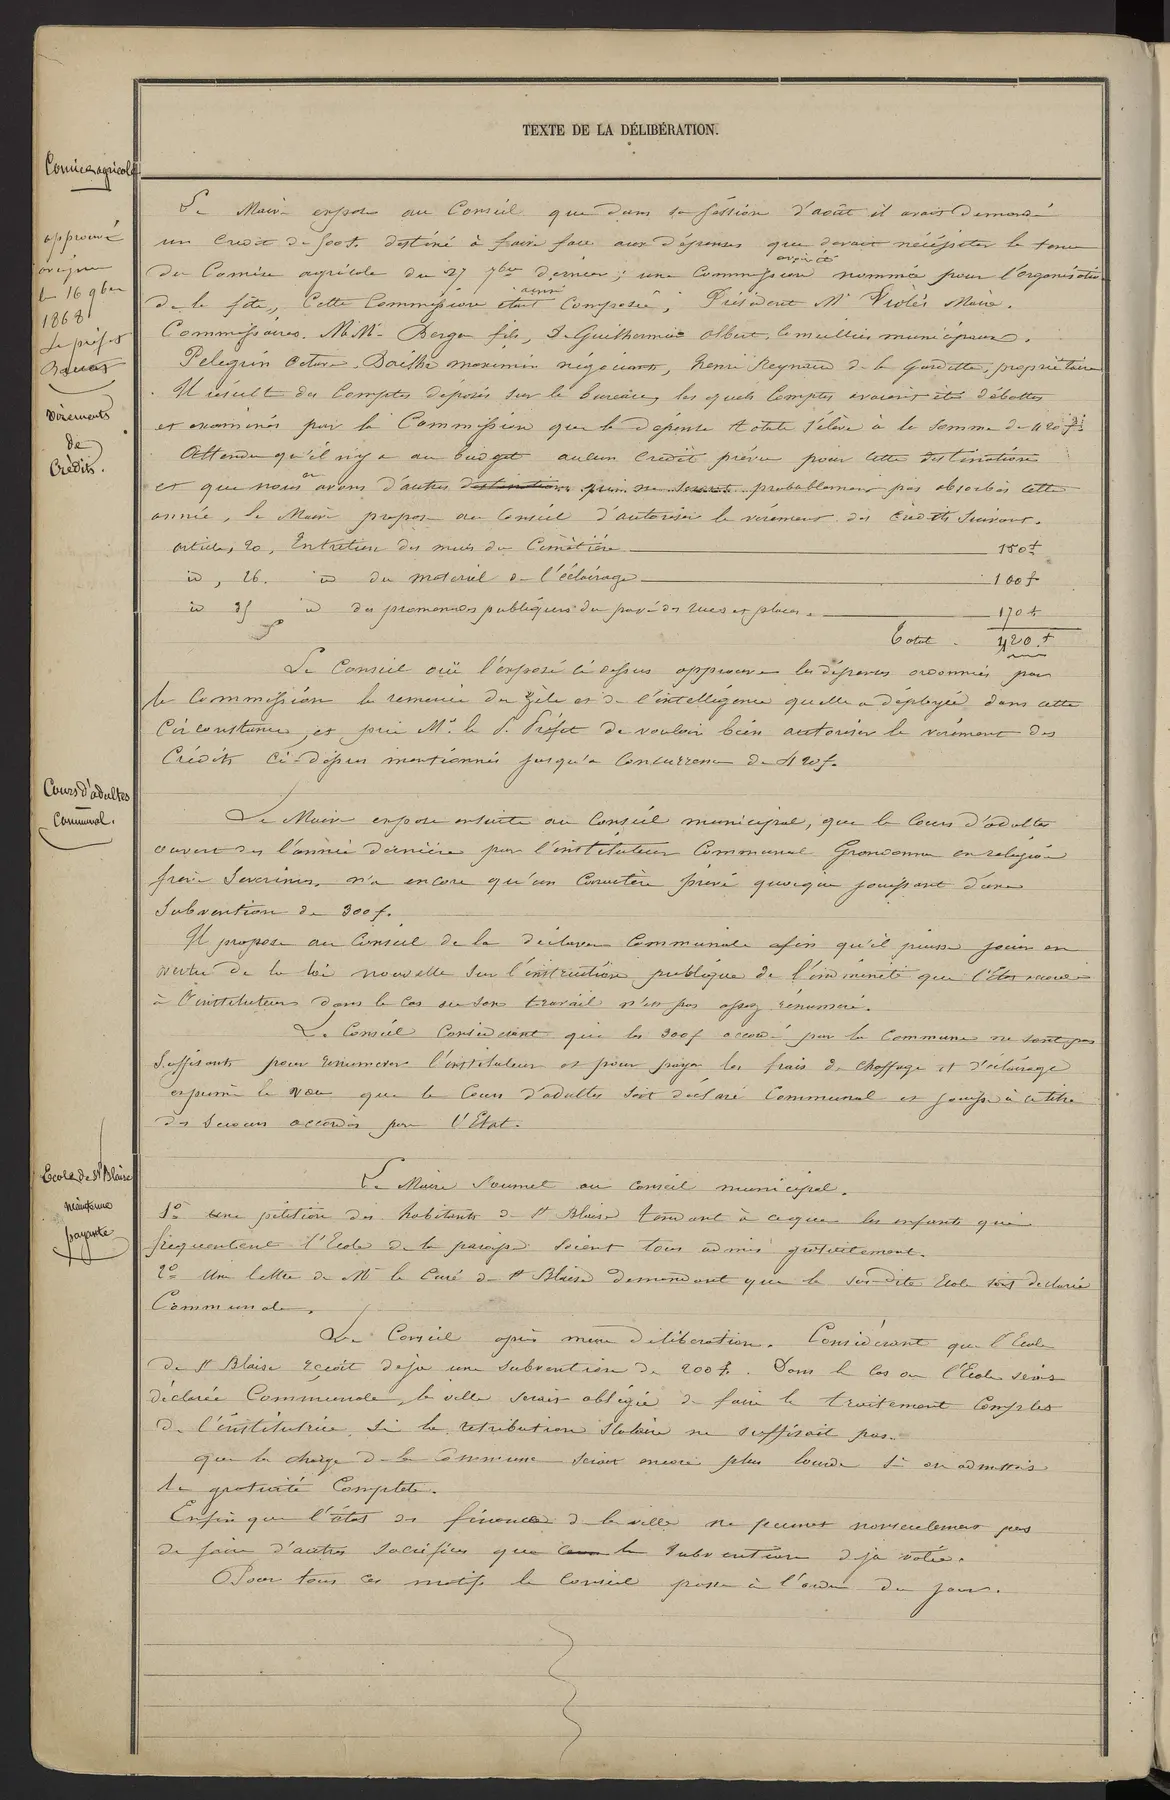 TEXTE DE LA DÉLIBÉRATION.
Comice agricole
approuvé
origine
le 16 9bre
1868
Le préfet
Virements
de
Crédits.
Le Maire expose au Conseil que dans sa session d'août il avait demandé
un Credit de 500f. destiné à faire face aux dépenses que devait nécéssiter la tenue
du Comice agricole du 27 7bre dernier; une Commission avait été nommée pour l'organisation
de la fête, Cette Commission était ainsi Composée; Président Mr Violès Maire.
Commissaires. M.M. Berger fils, De Guilhermier Albert, Conseillers municipaux.
Pelegrin Octave. négociants, Henri Reynaud de la Gardette, propriétaire
Il résulte des Comptes déposés sur le bureau, les quels Comptes avaient été débattus
et examinés par la Commission que la dépense totale s'élève à la somme de 420f.
Attendu qu'il n'y a au budget aucun Crédit prévu pour cette destination
et que nous en avons d'autres destinations qui ne seront probablement pas absorbés cette
année, le Maire propose au Conseil d'autoriser le virement des Crédits suivant.
article, 20, Entretien des murs du Cimétière 150f
id, 26. id du materiel de l'éclairage 100f
id 35 id des promenades publiques du pavé des rues et places. 170f
Total. 420.f
Le Conseil ouï l'exposé ci dessus approuve les dépenses ordonnées par
la Commission la remercie du zèle et de l'intelligence quelle a déployée dans cette
Circonstance, et prie Mr. le S. Préfet de vouloir bien autoriser le virement des
Crédits Ci-dessus mentionnés jusqu'a Concurrence de 420f.
Cours d'adultes
Communal.
Le Maire expose ensuite au Conseil municipal, que le Cours d'adultes
ouvert dès l'année dernière par l'instituteur Communal en religion
frère Severinus, n'a encore qu'un Caractère privé quoique jouissant d'une
Subvention de 300f.
Il propose au Conseil de le déclarer Communale afin qu'il puisse jouir en
vertu de la loi nouvelle sur l'instruction publique de l'indemnité que l'Etat accorde
à l'instituteur dans le cas ou son travail n'est pas assez rénuméré.
Le Conseil Considerant que les 300f accordé par la Commune ne sont pas
Suffisants pour renumerer l'instituteur et pour payer les frais de chauffage et d'éclairage
exprime le voeu que le Cours d'adultes soit déclaré Communal et jouisse à ce titre
des secours accordés par l'Etat.
Ecole de St Blaise
maintenue
payante
Le Maire Soumet au Conseil municipal.
1o une pétition des habitants de St Blaise tendant à ce que les enfants qui
frequentent l'Ecole de la paroisse soient tous admis gratuitement.
2o Une lettre de Mr le Curé de St Blaise demandant que la sus-dite Ecole soit déclarée
Communale.
Le Conseil après mure déliberation. Considérant que l'Ecole
de St Blaise reçoit déja une subvention de 200f. Dans le cas ou l'Ecole serait
déclarée Communale, la ville serait obligée de faire le traitement Complet
de l'institutrice, si la rétribution Scolaire ne suffisait pas.
que la charge de la Commune serait encore plus lourde si on admettait
la gratuité Complete.
Enfin que l'état des finances de la ville ne permet pas
de faire d'autres sacrifices que la subvention déja votée.
Pour tous ces motifs le Conseil passe à l'ordre du jour.